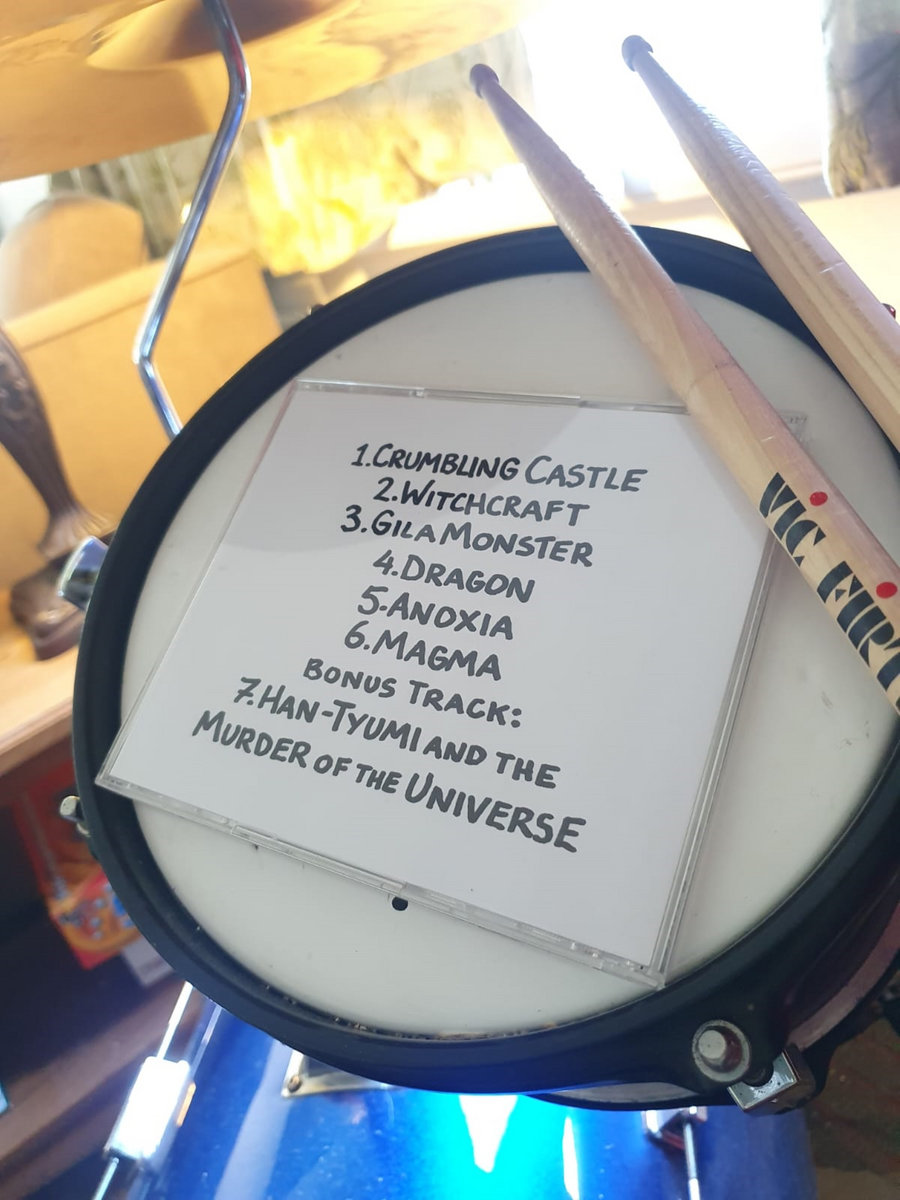 1.CRUMBLING CASTLE
2.WITCHCRAFT
3.GILA MONSTER
4.DRAGON
5.ANOXIA
6.MAGMA
BONUS TRACK:
7.HAN-TYUMI AND THE
MURDER OF THE UNIVERSE
VIC FIRT